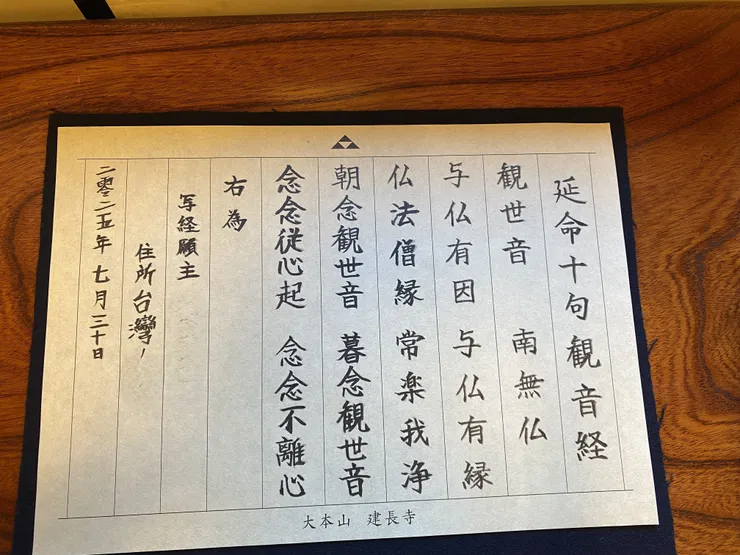 延命十句観音経
観世音 南無仏
与仏有因 与仏有縁
仏法僧縁 常楽我浄
朝念観世音 暮念観世音
念念従心起 念念不離心
右為
写経願主
住所台灣
二零二五年七月三十日
大本山 建長寺